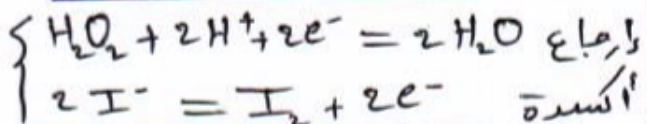 H₂O₂ + 2H⁺ + 2e⁻ = 2H₂O إرجاع
2I⁻ = I₂ + 2e⁻ أكسدة